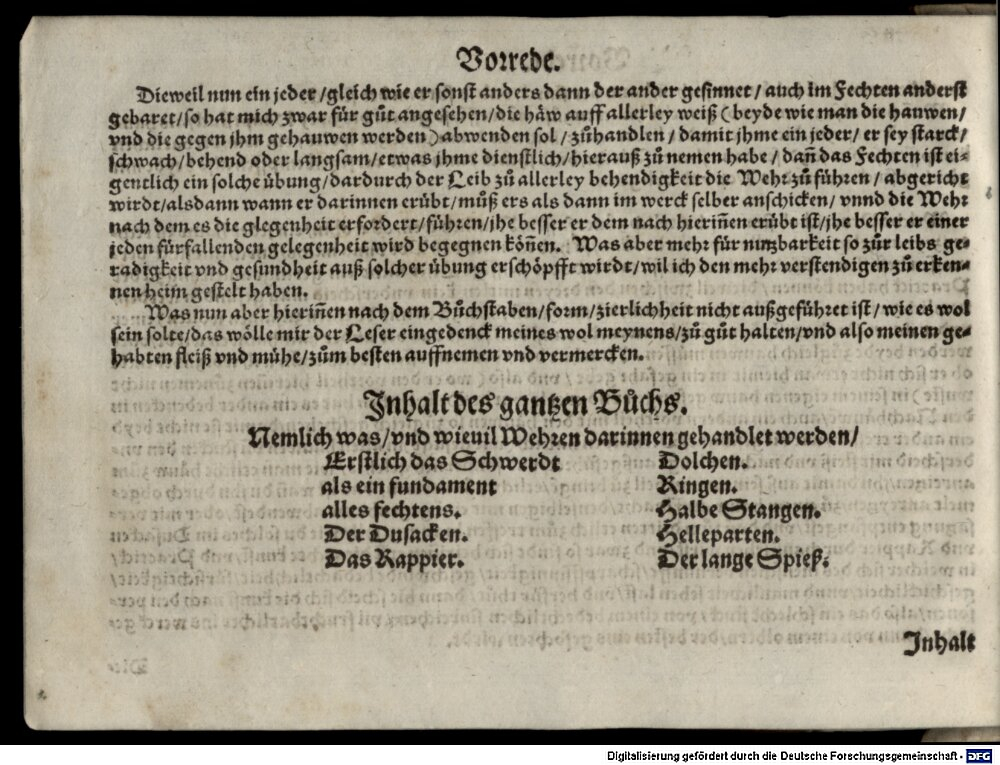 Vorrede.
Dieweil nun ein jeder/gleich wie er sonst anders dann der ander gesinnet/ auch im Fechten anderst
gebaret/so hat mich zwar für gůt angesehen/die häw auff allerley weiß (beyde wie man die hauwen/
vnd die gegen jhm gehauwen werden) abwenden sol/ zůhandlen/ damit jhme ein jeder/ er sey starck/
schwach/behend oder langsam/etwas jhme dienstlich/hierauß zů nemen habe/ dañ das Fechten ist ei-
gentlich ein solche übung/dardurch der Leib zů allerley behendigkeit die Wehr zů führen/ abgericht
wirdt/alsdann wann er darinnen erübt/můß ers als dann im werck selber anschicken/ vnnd die Wehr
nach dem es die glegenheit erfordert/führen/jhe besser er dem nach hieriñen erübt ist/jhe besser er einer
jeden fürfallenden gelegenheit wird begegnen köñen. Was aber mehr für nutzbarkeit so zůr leibs ge-
radigkeit vnd gesundheit auß solcher übung erschöpfft wirdt/wil ich den mehr verstendigen zů erken-
nen heim gestelt haben.
Was nun aber hieriñen nach dem Bůchstaben/form/zierlichheit nicht außgeführet ist/wie es wol
sein solte/das wölle mir der Leser eingedenck meines wol meynens/zů gůt halten/vnd also meinen ge-
habten fleiß vnd mühe/zům besten auffnemen vnd vermercken.
Inhalt des gantzen Bůchs.
Nemlich was/vnd wieuil Wehren darinnen gehandlet werden/
Erstlich das Schwerdt
als ein fundament
alles fechtens.
Der Dusacken.
Das Rappier.
Dolchen.
Ringen.
Halbe Stangen.
Helleparten.
Der lange Spieß.
Inhalt
Digitalisierung gefördert durch die Deutsche Forschungsgemeinschaft - DFG